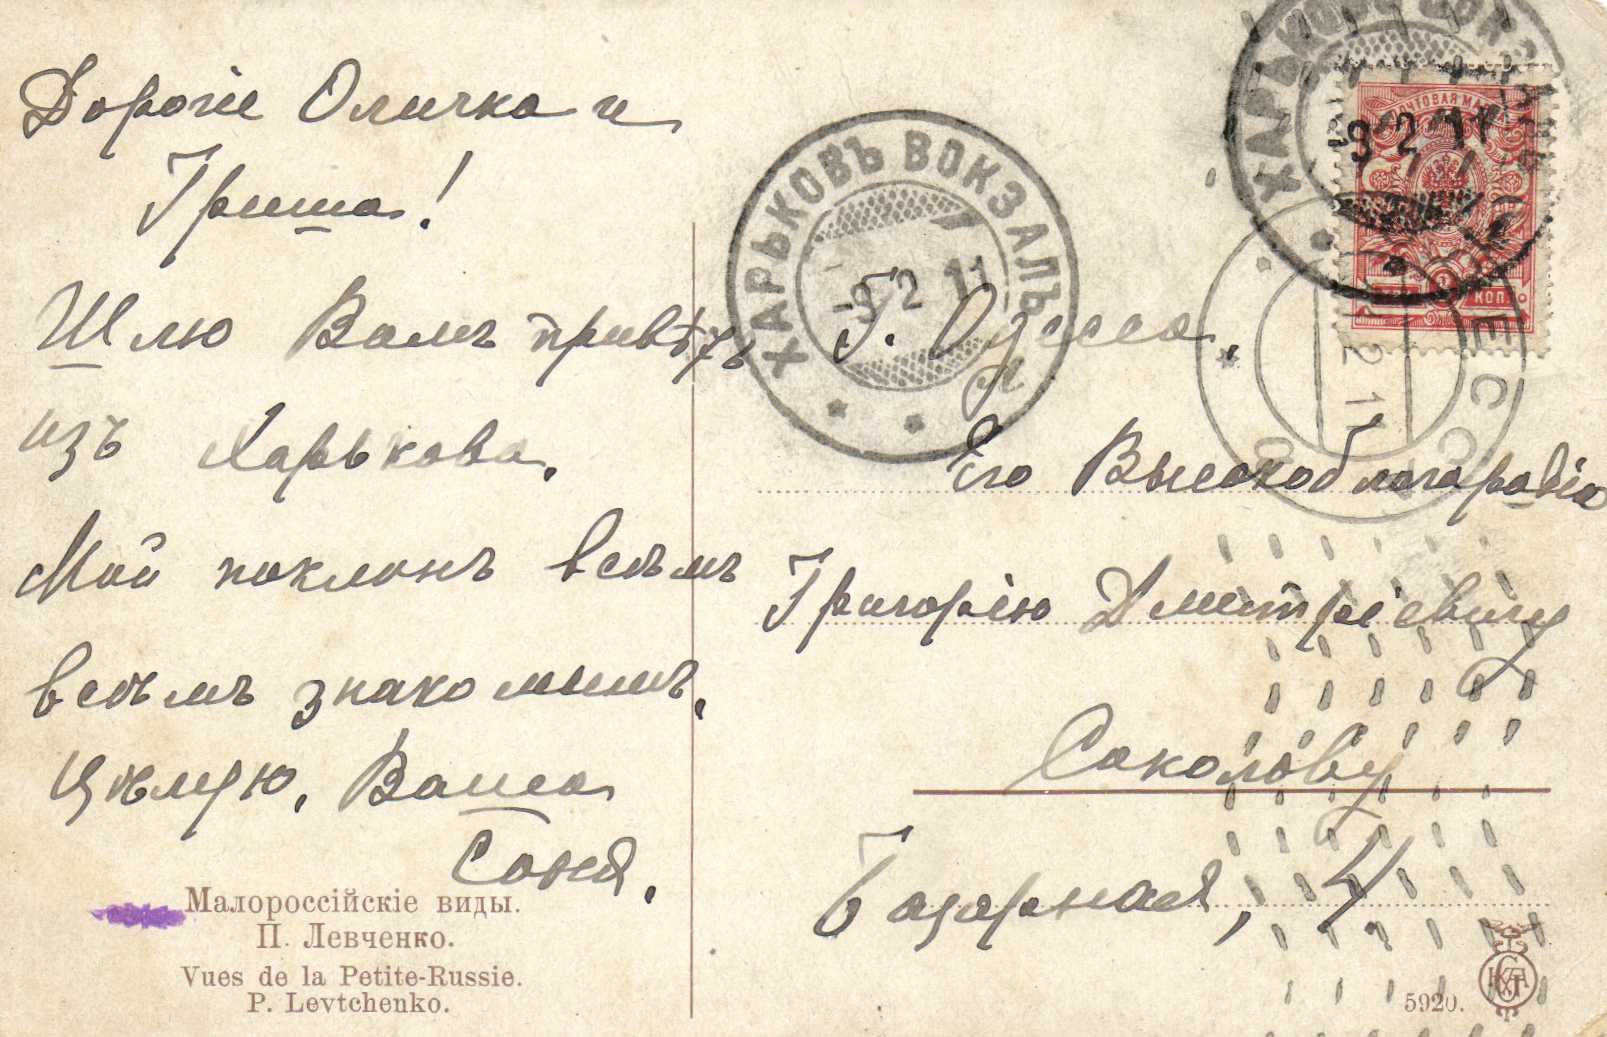 Дорогіе Оличка и
Гриша!
Шлю Вамъ привѣтъ
изъ Харькова.
Мой поклонъ всѣмъ
всѣмъ знакомымъ.
Цѣлую. Ваша
Соня.
Малороссійскіе виды.
П. Левченко.
Vues de la Petite-Russie.
P. Levtchenko.
ХАРЬКОВЪ ВОКЗАЛЪ
-9 2 11
ХАРЬКОВЪ ВОКЗАЛЪ
9 2 11
ПОЧТОВАЯ МАРКА
КОП.
ОДЕССА
2 11
Г. Одесса.
Его Высокоблагородію
Григорію Дмитріевичу
Соколову
Базарная, 4.
5920.